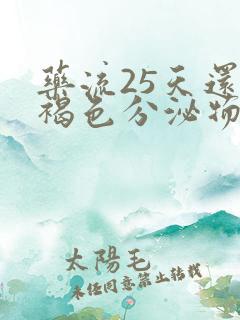 藥流25天還
褐色分泌物
太陽毛
未經同意禁止轉載